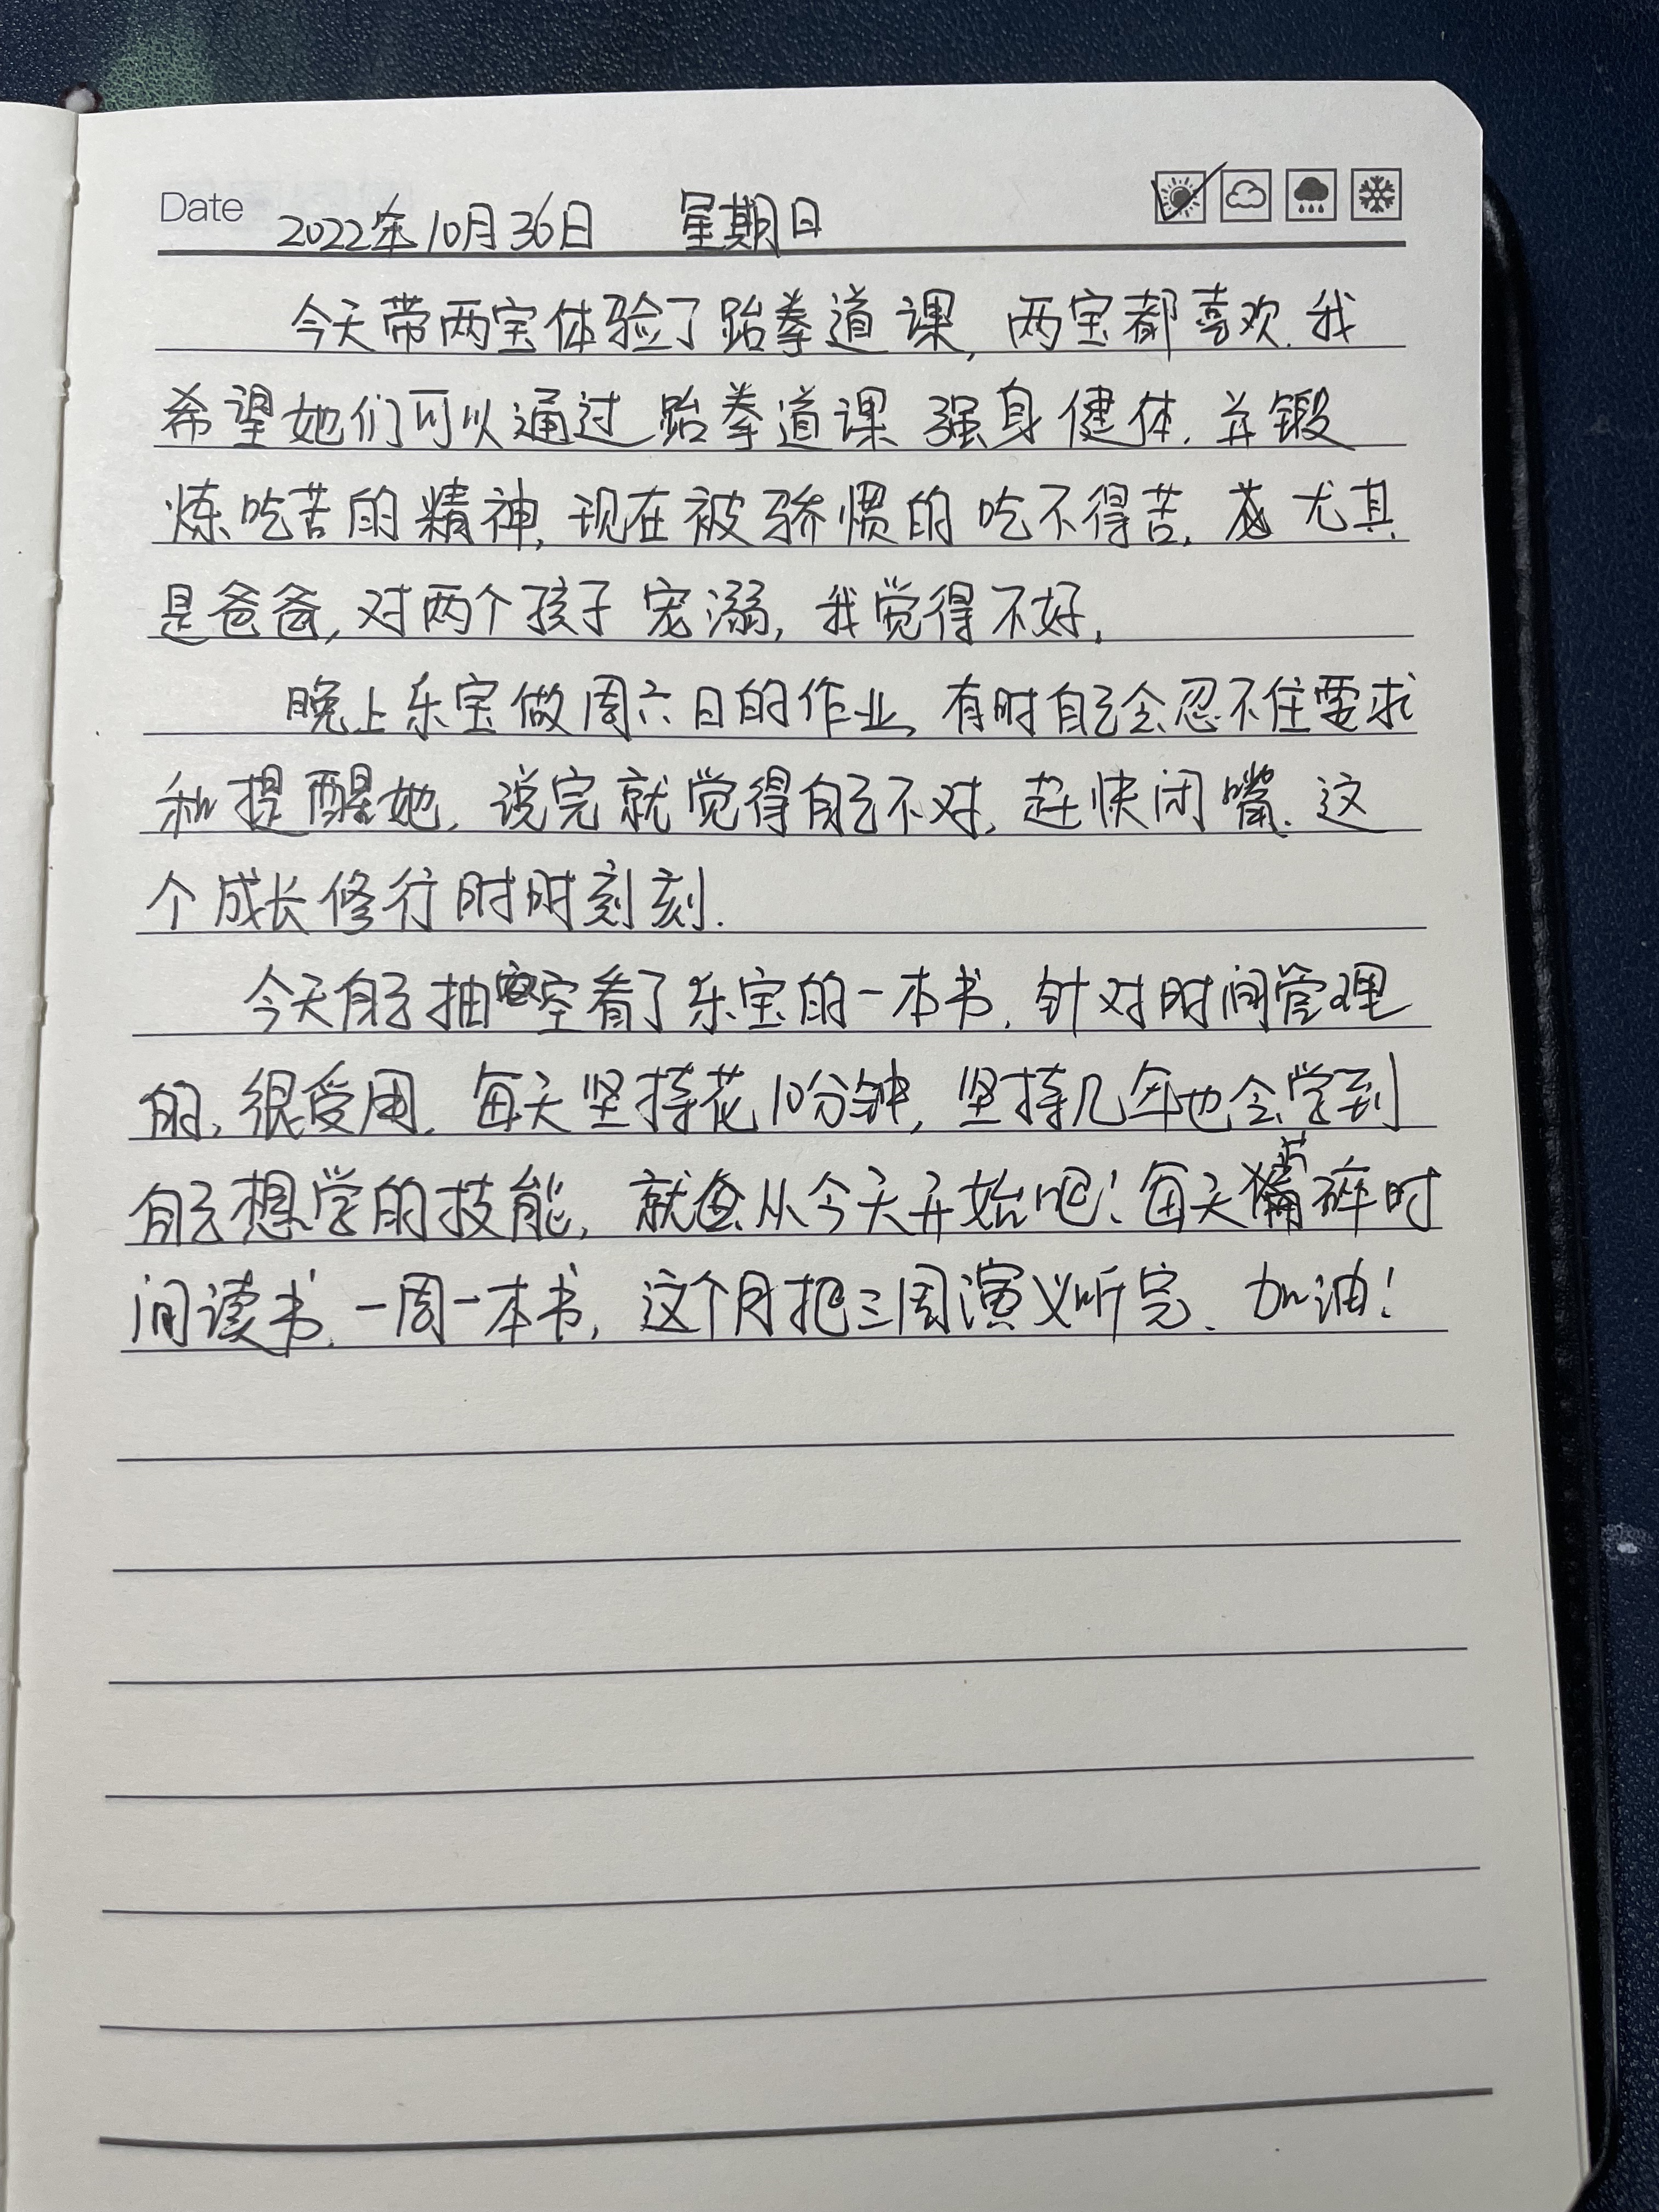 Date 2022年10月30日 星期日
今天带两宝体验了跆拳道课,两宝都喜欢.我
希望她们可以通过跆拳道课强身健体.并锻
炼吃苦的精神,现在被骄惯的吃不得苦.尤其
是爸爸,对两个孩子宠溺,我觉得不好.
晚上乐宝做周六日的作业,有时自己会忍不住要求
和提醒她.说完就觉得自己不对,赶快闭嘴.这
个成长修行时时刻刻.
今天自己抽空看了乐宝的一本书.针对时间管理
的,很受用.每天坚持花10分钟,坚持几年也会学到
自己想学的技能,就从今天开始吧!每天碎时
间读书.一周一本书,这个月把三国演义听完.加油!